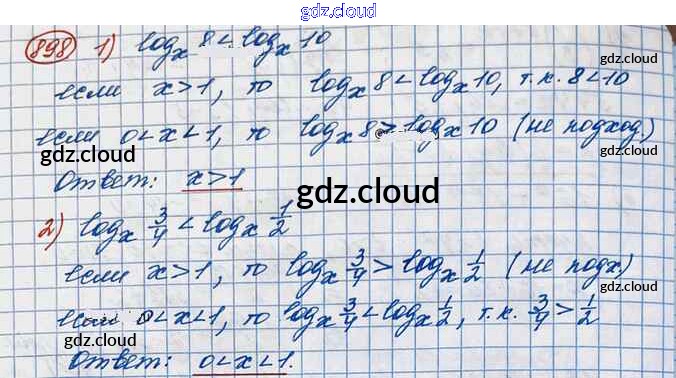 gdz.cloud
898 1) log_x 8 < log_x 10
gdz.cloud
если x>1, то log_x 8 < log_x 10, т.к. 8<10
gdz.cloud
если 0<x<1, то log_x 8 > log_x 10 (не подход.)
gdz.cloud
gdz.cloud
Ответ: x>1
gdz.cloud
2) log_x 3/4 < log_x 1/2
если x>1, то log_x 3/4 > log_x 1/2 (не подх.)
gdz.cloud
если 0<x<1, то log_x 3/4 < log_x 1/2, т.к. 3/4 > 1/2
gdz.cloud
gdz.cloud
Ответ: 0<x<1.